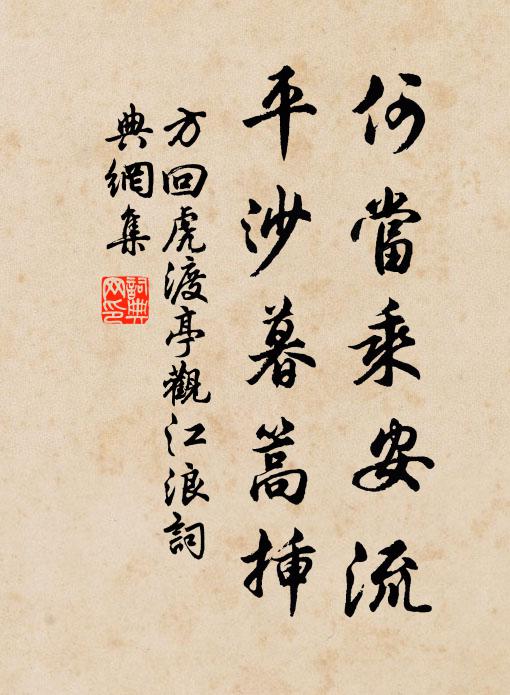 何當乘安流
平沙暮篙揷
方回虎渡亭觀江浪詞
典網集
詞典
网印